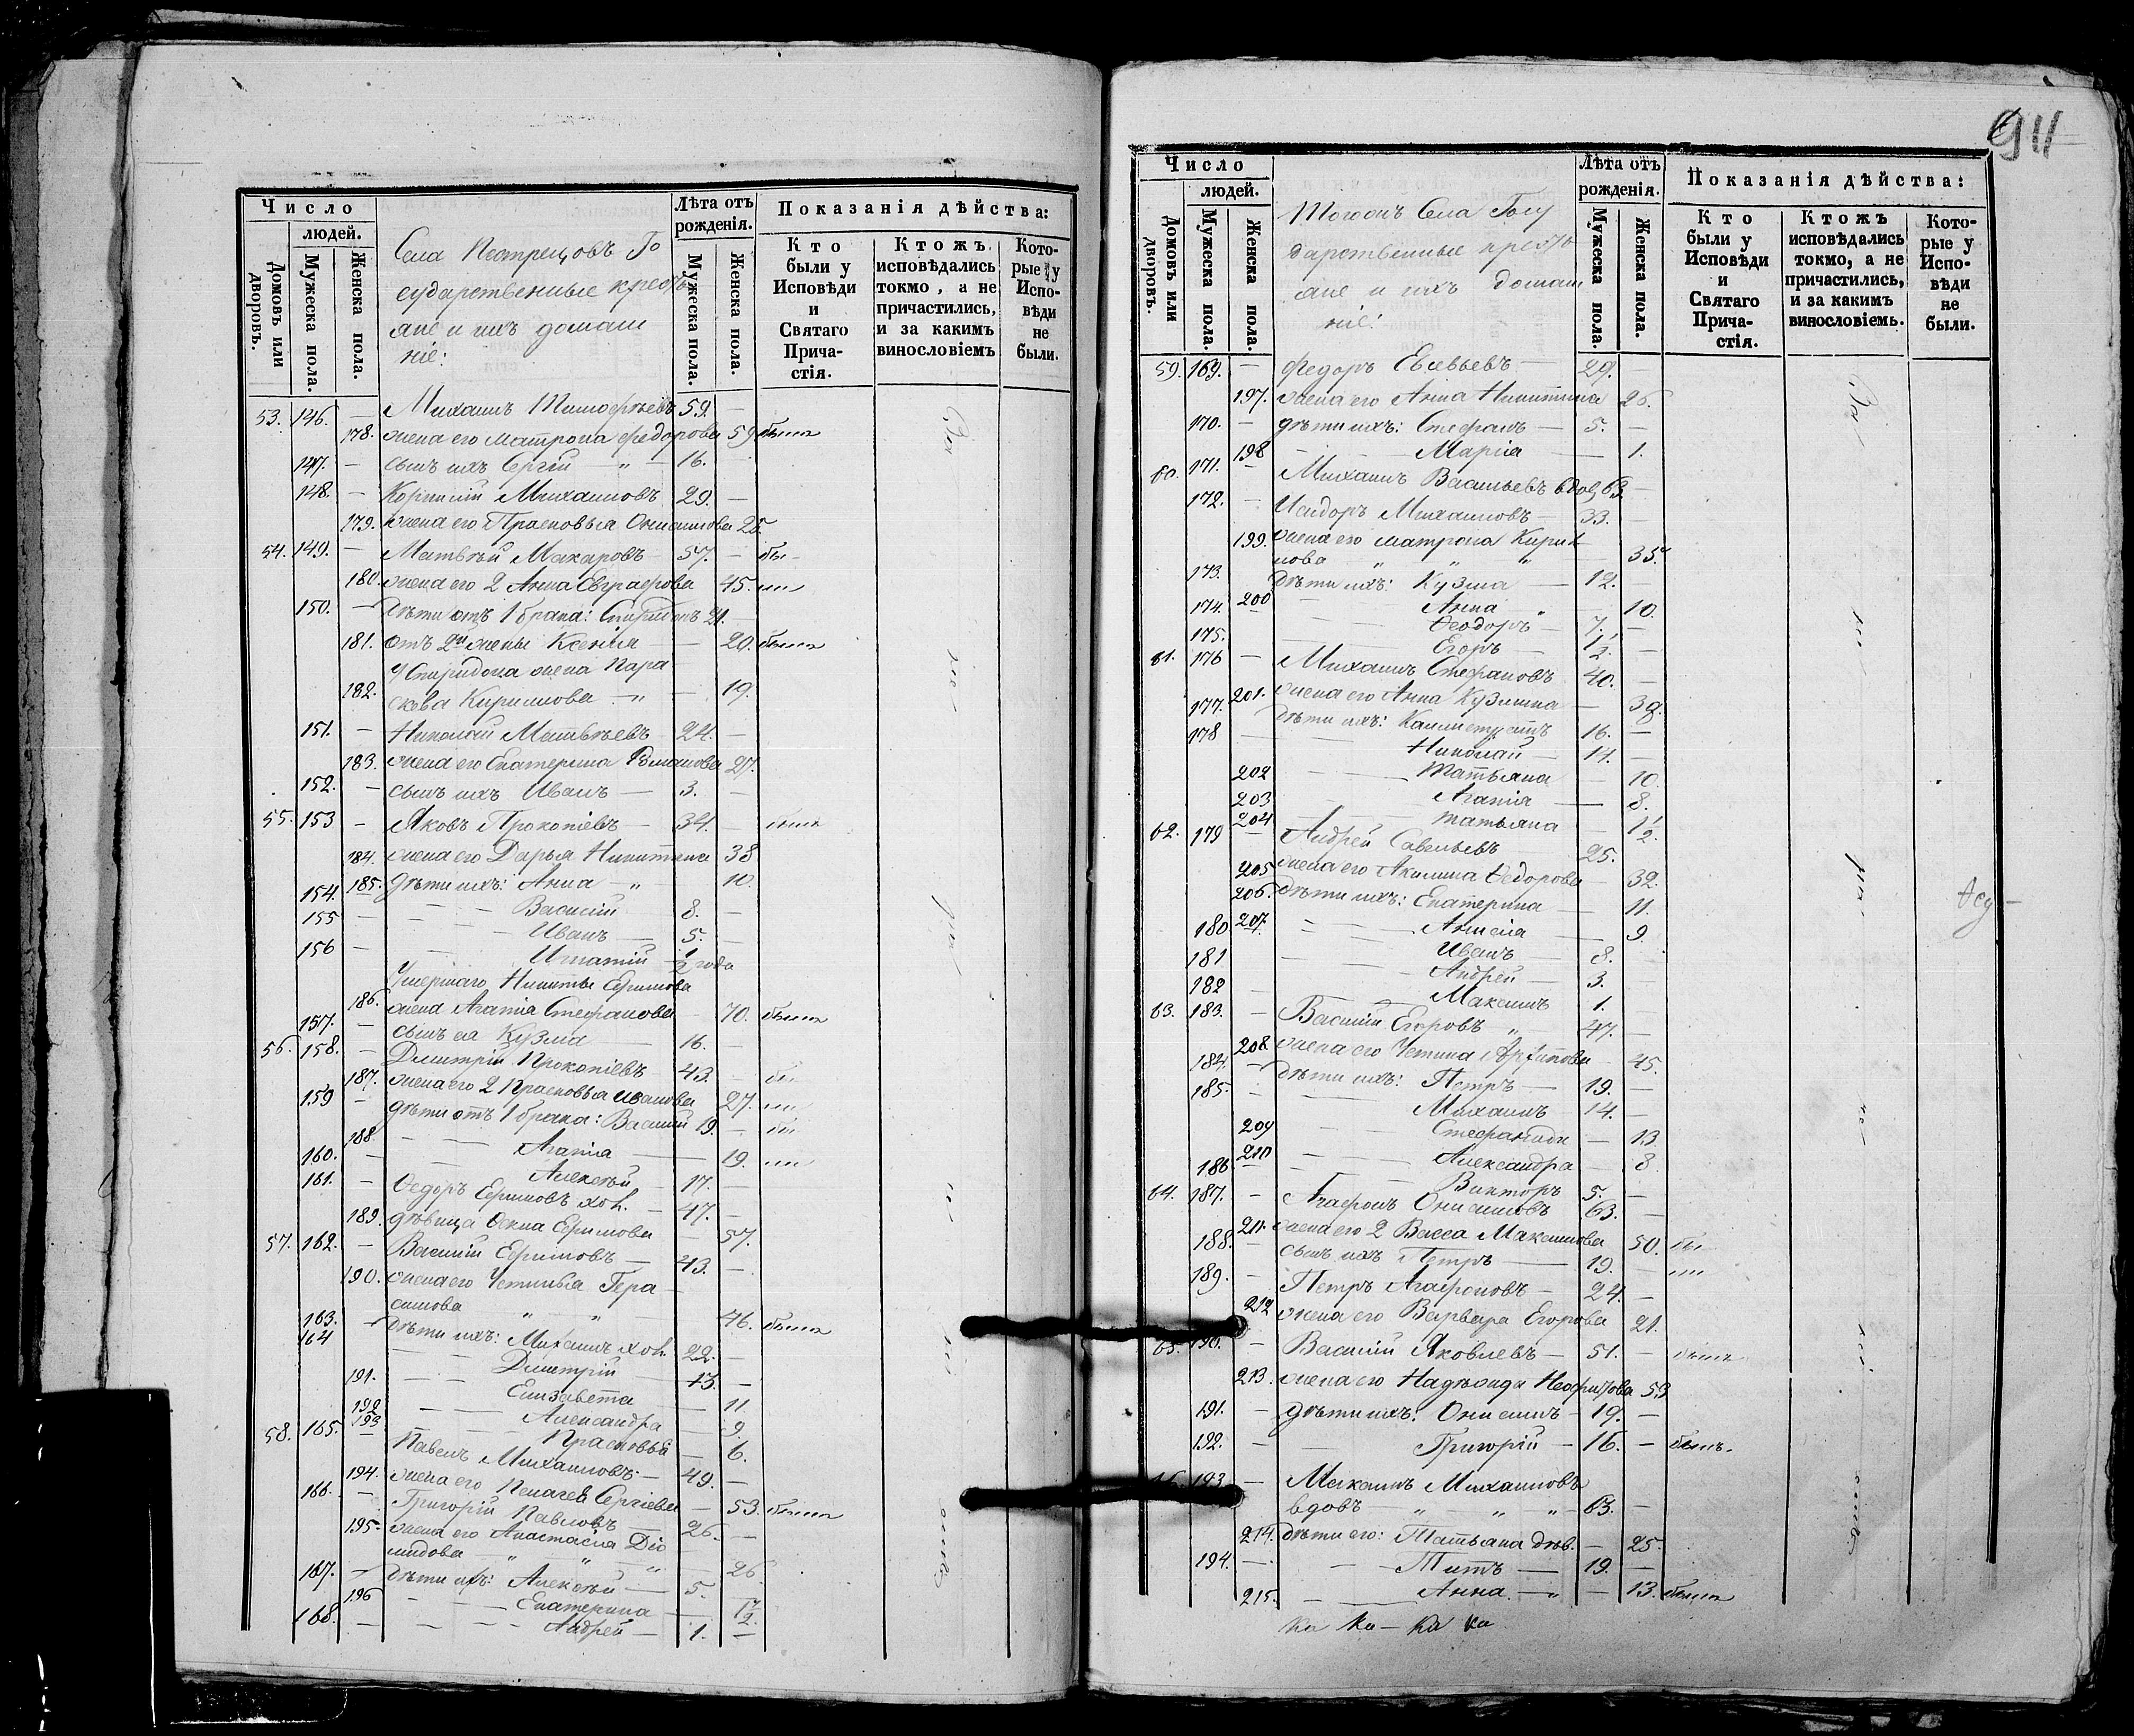 Число
людей.
Домовъ или дворовъ.
Мужеска пола.
Женска пола.
Села Пестрецовъ Го
сударственные кресть
яне и ихъ домаш
ніе:
Лѣта отъ рожденія.
Мужеска пола.
Женска пола.
Показанія дѣйства:
Кто были у Исповѣди и Святаго Прича-стія.
Ктожъ исповѣдались токмо, а не причастились, и за какимъ винословіемъ
Кото-рые у Испо-вѣди не были.
53. 146. — Михаилъ Тимофѣевъ 59. —
178. жена его Матрона Федорова 59 была
147. — сынъ ихъ Сергій — „ — 16.
148. — Михаиловъ 29. —
179. жена его Прасковья Онисимова 25.
54. 149. — Матвѣй Макаровъ 57. — бы-
180. жена его 2 Анна Евграфова 45. ли
150. — дѣти отъ 1 брака: Спиридонъ 21. —
181. отъ 2й жены Ксенія — 20. была
У Спиридона жена Пара
182. скева Кирилова — „ — 19.
151. — Николай Матвѣевъ 24. —
183. жена его Екатерина Романова 27.
152. — сынъ ихъ Иванъ — 3. —
55. 153 — Яковъ Прокопіевъ — 34. —
184. жена его Дарья Никитина 38
185. дѣти ихъ: Анна — „ — 10.
154. — Василій 8. —
155 — Иванъ — 5. —
156 — Игнатій — 1/2 года
Умершаго Никиты Ефимова
186. жена Агапія Стефанова 70. была
157. — сынъ ея Кузма — 16. —
56. 158. — Димитрій Прокопіевъ 43. — бы
187. жена его 2 Прасковья Иванова 27. ли
159 — дѣти отъ 1 брака: Василій 19. —
188. — Агапія — 19.
160. — Алексѣй 17. —
161. — Ѳедоръ Ефимовъ хол. — 47. —
189. дѣвица Ефимова — 57.
57. 162. — Василій Ефимовъ — 43. —
190. жена его Устинья Гера
симова „ „ 46. была
163. — дѣти ихъ: Михаилъ хол. 22. —
164 — Димитрій 13. —
191. — Елизавета — 11
192 — Александра — 9.
193 — Прасковья — 6.
58. 165. Павелъ Михаиловъ — 49. —
194. жена его Пелагея Сергіева — 53. была
166. — Григорій Павловъ — 26. —
195. жена его Анастасія Діо
мидова „ „ „ 26.
167. — дѣти ихъ: Алексѣй — 5.
196 — Екатерина — 1/2.
168. — Андрей — 1. —
94
Число
людей.
Домовъ или дворовъ.
Мужеска пола.
Женска пола.
Тогожъ Села Госу
дарственные кресть
яне и ихъ домаш
ніе:
Лѣта отъ рожденія.
Мужеска пола.
Женска пола.
Показанія дѣйства:
Кто были у Исповѣди и Святаго Прича-стія.
Ктожъ исповѣдались токмо, а не причастились, и за какимъ винословіемъ.
Кото-рые у Испо-вѣди не были.
59. 169. — Федоръ — 29.
197. жена его Анна Никитина 26.
170. — дѣти ихъ: Стефанъ — 5. —
198 — Марія — 1.
60. 171. — Михаилъ Васильевъ вдов. 63. —
172. — Исидоръ Михаиловъ — 33. —
199. жена его Матрона Кирил
лова „ „ 35.
173. дѣти ихъ: Кузма — 12. —
200 Анна „ 10.
174. Ѳеодоръ — 7. —
175. Егоръ — 1/2. —
61. 176 — Михаилъ Стефановъ 40. —
201. жена его Анна Кузмина — 39.
177. дѣти ихъ: Калистратъ 16. —
178 — Николай — 14. —
202 — Татьяна — 10.
203 Агапія — 8.
204 Татьяна — 1/2.
62. 179 Андрей Савельевъ 25.
205 жена его Акилина Ѳедорова — 32.
206. дѣти ихъ: Екатерина — 11.
207. — — 9.
180 Иванъ 8.
181 — Андрей — 3.
182 — Максимъ 1.
63. 183. — Василій Егоровъ „ 47. —
208. жена его Устина Архипова 45.
184. — дѣти ихъ: Петръ — 19. —
185. — Михаилъ — 14. —
209 — Стефанида — 13
210 — Александра — 8
186 — Викторъ 5. —
64. 187. — Агафонъ Онисимовъ 63. —
211. жена его 2 Васса Максимова 50. бы
188. сынъ ихъ Петръ — 19. — ли
189. — Петръ Агафоновъ — 24. —
212 жена его Варвара Егорова 21.
65. 190. — Василій Яковлевъ — 51. — былъ
213. жена его Надежда Неофитова 53
191. — дѣти ихъ: Онисимъ — 19. —
192. — Григорій — 16. — былъ.
193 — Михаилъ Михаиловъ
вдовъ „ „ „ 63. —
214. дѣти его: Татьяна дѣв. — 25
194. — Титъ — 19. —
215. — Анна — „ — 13. была
ка ка — ка ка